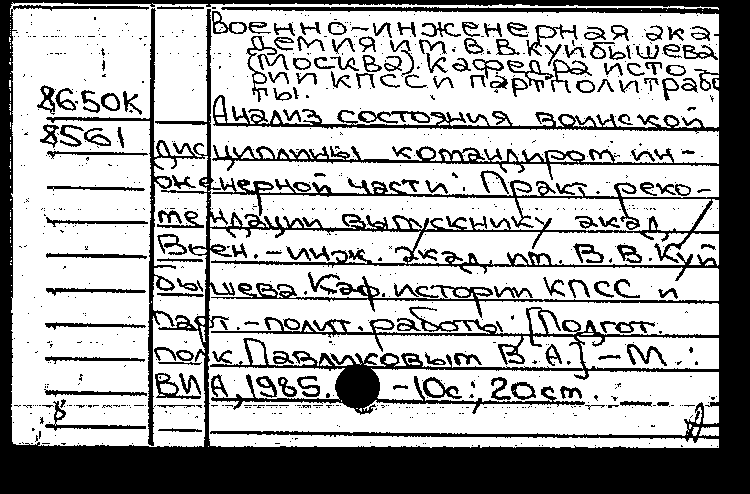 Военно-инженерная ака-
демия им. В.В. Куйбышева
(Москва). Кафедра исто-
рии КПСС и партполитрабо
ты.
8650К
Анализ состояния воинской
8561
дисциплины командиром ин-
женерной части: Практ. реко-
мендации выпускнику акад.
Воен.-инж. акад. им. В.В. Куй
бышева. Каф. истории КПСС и
парт.-полит. работы; [Подгот.
полк. Павликовым В.А.] - М.:
ВИА, 1985. - 10с.; 20 см.
8